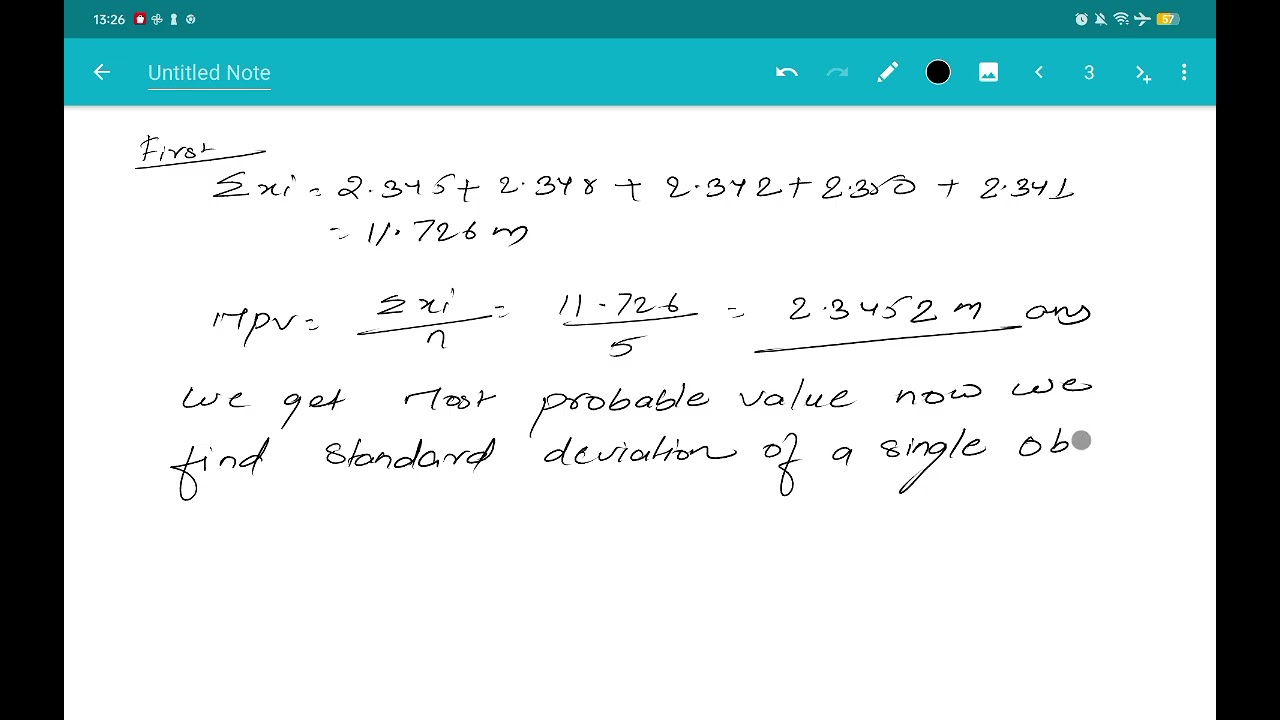 13:26
57
Untitled Note
3
First
Σxi = 2.345 + 2.348 + 2.342 + 2.350 + 2.341
= 11.726 m
Mpv = Σxi / n = 11.726 / 5 = 2.3452 m ans
we get Most probable value now we
find standard deviation of a single ob